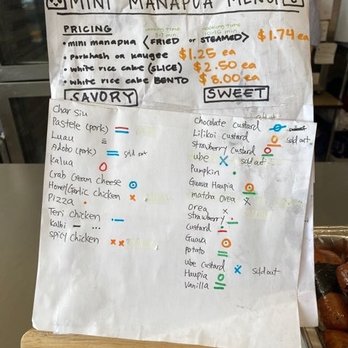 MINI MANAPUA MENU
PRICING
• mini manapua (FRIED or STEAMED) $1.74 ea
• porkhash or kaugee $1.25 ea
• white rice cake (SLICE) $2.50 ea
• white rice cake BENTO $8.00 ea
SAVORY
Char Siu
Pastele (pork)
Luau
Adobo (pork) sold out
Kalua
Crab Cream Cheese
Honey/Garlic chicken
Pizza
Teri chicken
Kalbi
spicy chicken
SWEET
Chocolate custard
Lilikoi Custard sold out
strawberry Custard
ube sold out
Pumpkin
Guava Haupia
matcha oreo
oreo
strawberry
custard
Guava
potato
ube custard sold out
Haupia
Vanilla